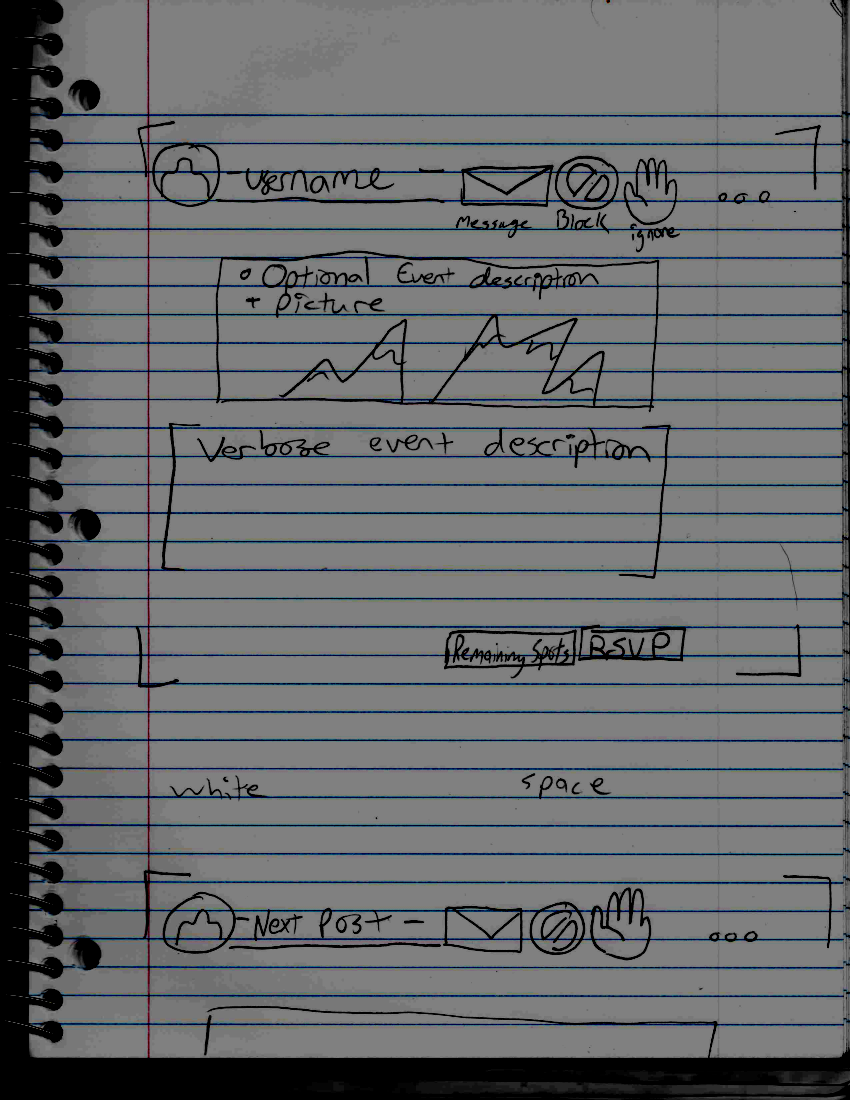 -username-
Message Block ignore
• Optional Event description
+ picture
Verboze event description
Remaining Spots RSVP
white space
-Next Post-